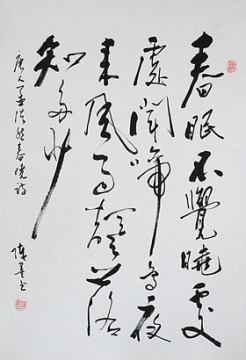 春眠不覺曉處
處聞啼鳥夜
來風雨聲花落
知多少
唐人孟浩然春曉詩